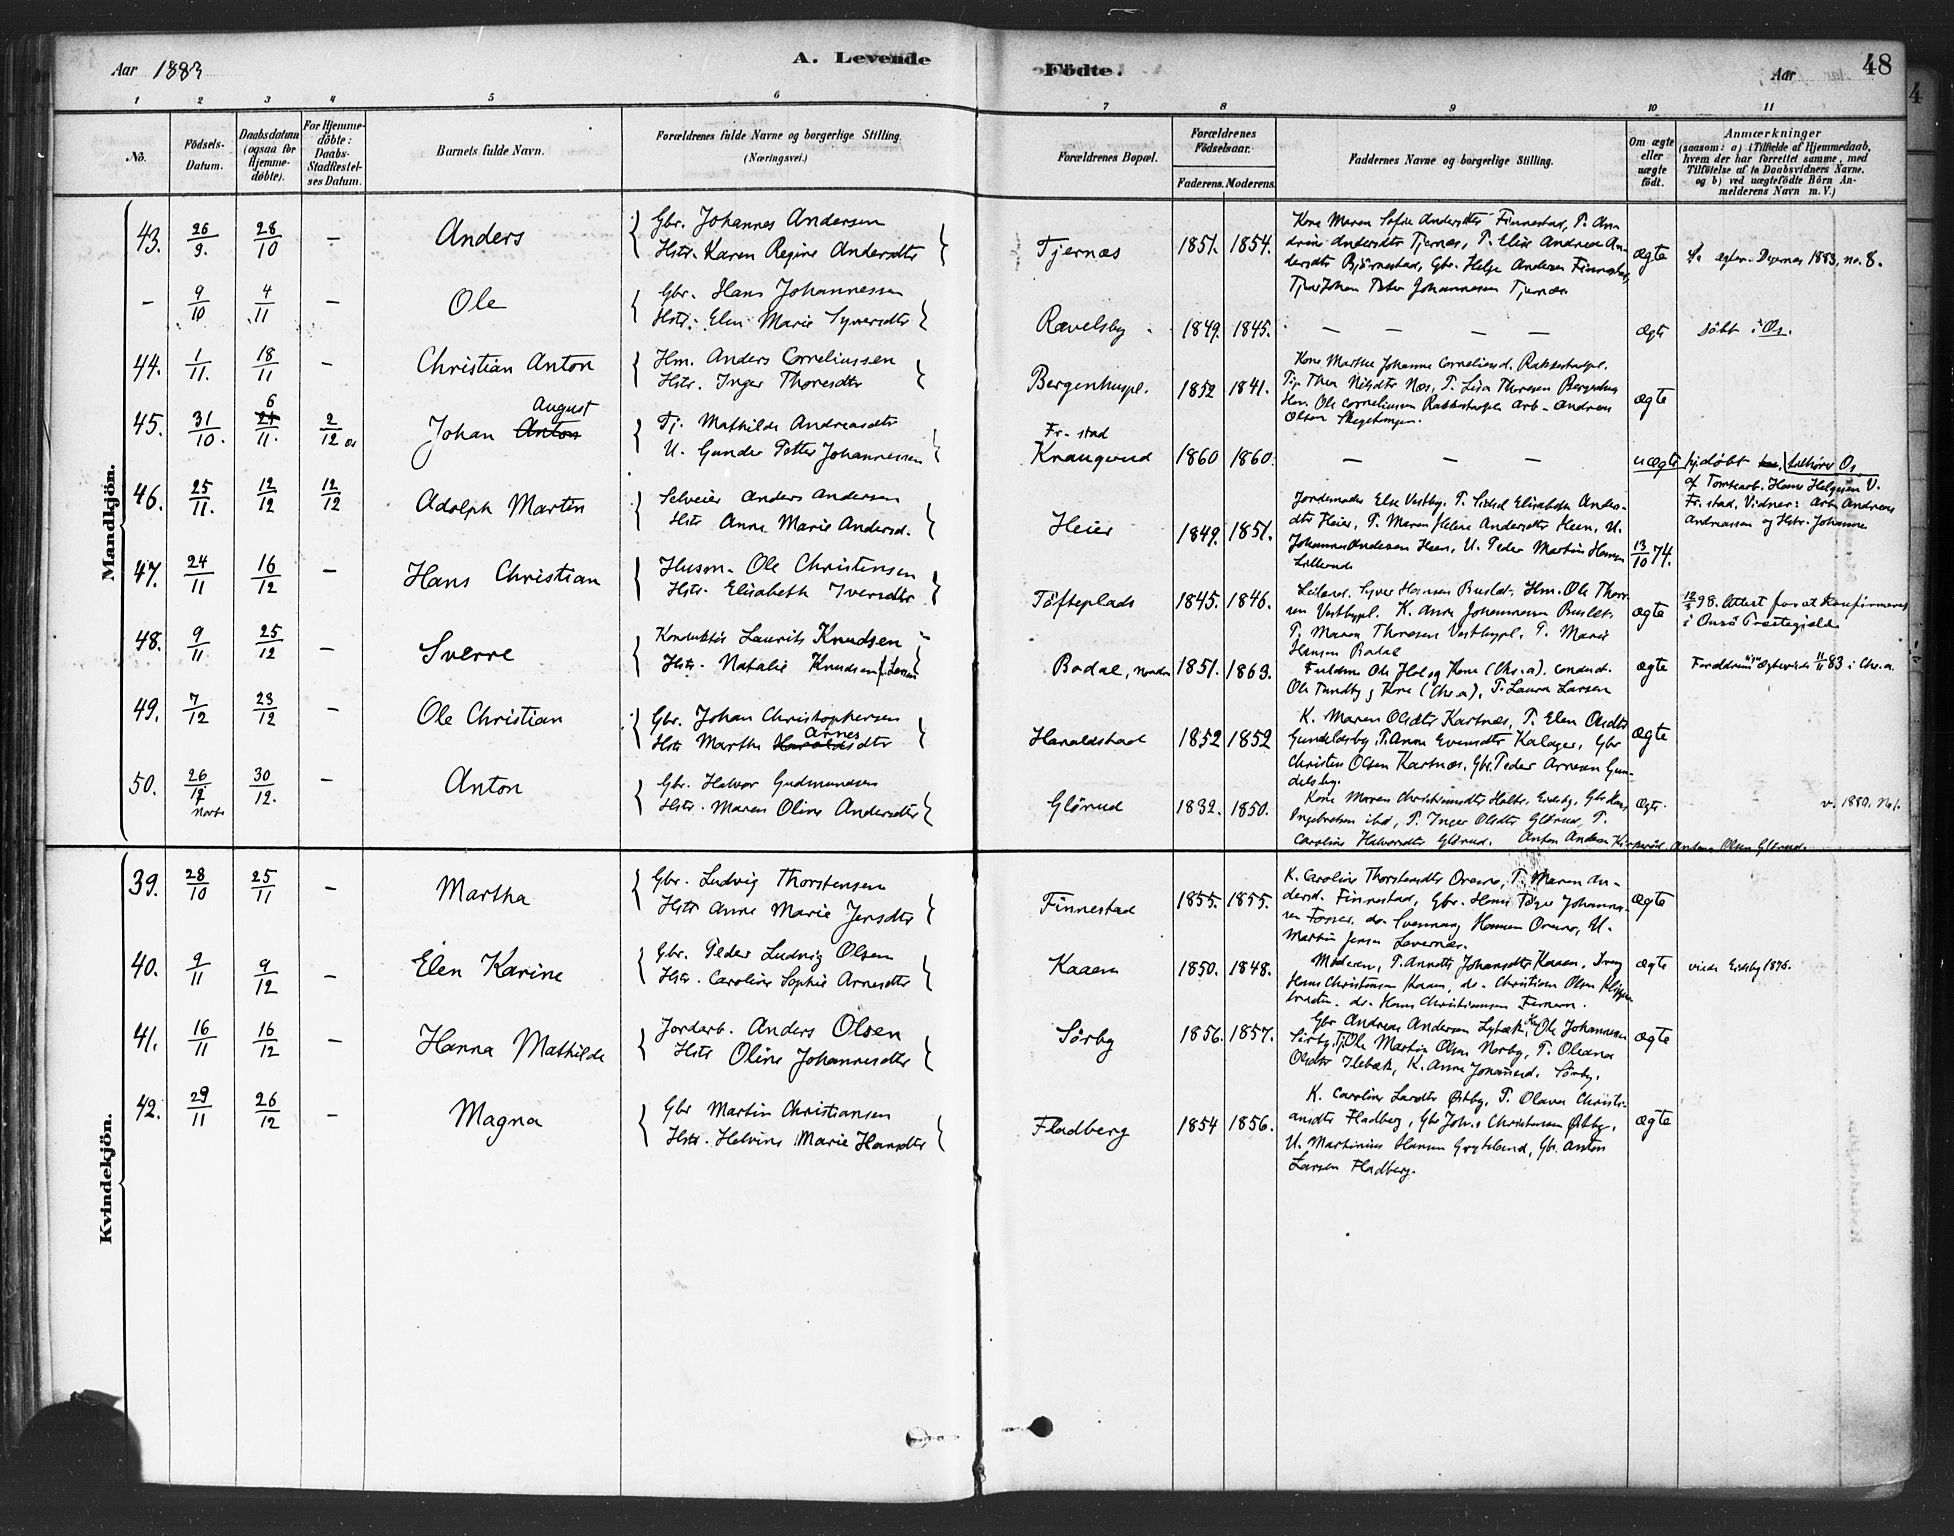 Aar 1883
A. Levende
Födte.
Aar
48
1 2 3 4 5 6 7 8 9 10 11
No.
Födsels-Datum.
Daabsdatum (ogsaa for Hjemme-döbte).
For Hjemme-döbte: Daabs-Stadfæstel-ses Datum.
Barnets fulde Navn.
Forældrenes fulde Navne og borgerlige Stilling. (Næringsvei.)
Forældrenes Bopæl.
Forældrenes Födselsaar.
Faderens. Moderens.
Faddernes Navne og borgerlige Stilling.
Om ægte eller uægte födt.
Anmærkninger
(saasom: a) i Tilfælde af Hjemmedaab,
hvem der har forrettet samme, med
Tilföielse af to Daabsvidners Navne.
og b) ved uægtefödte Börn An-
melderens Navn m. V.)
Mandkjön.
43. 26/9. 28/10 – Anders
Gbr. Johannes Andersen
Hstr. Karen Regine Andersdtr
Tjernæs 1851. 1854.
Kone Maren Sofie Andersdtr Finnestad, P. An-
drine Andersdtr Tjernæs, P. Elise Andrea An-
dersdtr Bjørnestad, Gbr. Helge Andersen Finnestad,
Johan Peter Johannesen Tjernæs
ægte
no. 8.
– 9/10 4/11 – Ole
Gbr. Hans Johannessen
Hstr. Elen Marie Syversdtr
Rævelsby 1849. 1845. – – – –
ægte døbt i Os.
44. 1/11. 18/11 – Christian Anton
Hm. Anders Corneliussen
Hstr. Inger Thoresdtr
Bergenhuspl. 1852 1841.
Kone Marthe Johanne Corneliusd. Rakkestadpl.
Thea Nilsdtr Næs, P. Lisa Thoresen Bergenhus
Hm. Ole Corneliussen Rakkestadpl. Arb. Andreas
Olsen
ægte
45. 31/10. 6 24/11. 2/12 Os Johan Anton August
Tj. Mathilde Andreasdtr
U. Gunder Petter Johannessen
Fr.stad
Krangerud 1860 1860. – – –
uægte hj.døbt tilhører Os
af Tomtearb. Hans Helgesen V.
Fr.stad, Vidner: Arb. Andreas
Andreassen og Hstr. Johanne
46. 25/11. 12/12 12/12 Adolph Martin
Selveier Anders Andersen
Hstr Anne Marie Andersd.
Heier 1849. 1851.
Jordemoder Else Vestby, P. Sidsel Elisabeth Anders-
dtr Heier, P. Maren Helene Andersdtr Heen, U.
Johannes Andersen Heen, U. Peder Martin Hansen
13/10 74.
47. 24/11 16/12 – Hans Christian
Husm. Ole Christensen
Hstr. Elisabeth Iversdtr
Töfteplads 1845. 1846.
Syver Hansen Buslet, Hm. Ole Thore-
sen Vestbypl. K. Anne Johannesen Buslet,
P. Maren Thoresen Vestbypl, P. Marie
Hansen Bodal
ægte
12/5 98. Attest for at konfirmeres
i Onsö Præstegjeld
48. 9/11 25/12 – Sverre
Konduktör Laurits Knudsen
Hstr. Natalie Knudsen f. Larsen
Bodal, nordre 1851. 1863.
Fuldm. Ole Hol og Kone (Chr.a). conduct.
Ole Tundby og Kone (Chr.a), P. Laura Larsen
ægte Forældrene Ægteviede 11/11 83 i Chr.a.
49. 7/12 23/12 – Ole Christian
Gbr. Johan Christophersen
Hstr Marthe Haraldsdtr Arnes
Haraldstad 1852 1852
K. Maren Olsdtr Kartnæs, P. Elen Olsdtr
Gundelsby, P. Anne Evensdtr Kalager, Gbr
Christen Olsen Kartnæs, Gbr. Peder Arnesen Gun-
delsby.
ægte
50. 26/12 30/12. – Anton
Gbr. Halvor Gudmundsen
Hstr. Maren Oline Andersdtr
Glørud 1832. 1850.
Kone Maren Christiansdtr Eidsby, Gbr
Ingebretsen ibd, P. Inger Olsdtr Glørud, P.
Caroline Halvorsdtr Glørud. Anton Andersen Anton Olsen Glørud.
Ægte. v. 1880. No 1.
Kvindekjön.
39. 28/10 25/11 – Martha
Gbr. Ludvig Thorstensen
Hstr Anne Marie Jensdtr
Finnestad 1855. 1855.
K. Caroline Thorstensdtr P. Maren An-
dersd. Finnestad, Gbr. Hans Johanne-
sen do. Svennung Hansen U.
Martin Jensen Levernæs.
ægte
40. 9/11 9/12 – Elen Karine
Gbr. Peder Ludvig Olsen
Hstr. Caroline Sophie Arnesdtr
Kaaen 1850. 1848.
Moderen, P. Annette Johansdtr Kaaen,
Hans Christensen Kaaen, do. Christian Olsen
do. Hans Christiansen
ægte viede Eidsby 1876.
41. 16/11 16/12 – Hanna Mathilde
Jordarb. Anders Olsen
Hstr Oline Johannesdtr
Sørby 1856. 1857.
Gbr Andreas Andersen Ole Johannesen
Sørby, Tj. Ole Martin Olsen Nørby, P. Oleana
Olsdtr K. Anne Johannesd. Sørby.
ægte
42. 29/11 26/12 – Magna
Gbr Martin Christiansen
Hstr. Helvine Marie Hansdtr
Fladberg 1854 1856.
K. Caroline Larsdtr Østby, P. Olava Christi-
ansdtr Fladberg, Gbr Johan Christensen Østby,
U. Martinius Hansen Gryteland, Gbr. Anton
Larsen Fladberg.
ægte